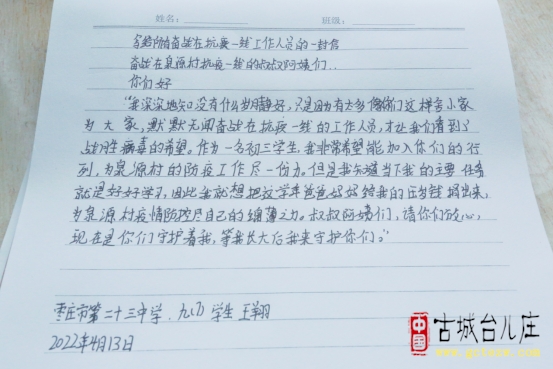 姓名: 班级:
写给所有奋战在抗疫一线工作人员的一封信
奋战在泉源村抗疫一线的叔叔阿姨们:
你们好
"我深深地知没有什么岁月静好,只是因有太多像你们这样舍小家
为大家,默默无闻奋战在抗疫一线的工作人员,才让我们看到了
战胜病毒的希望。作为一名初三学生,我非常希望能加入你们的行
列,为泉源村的防疫工作尽一份力。但是我知道当下我的主要任务
就是好好学习,因此我就想把这学年爸爸妈妈给我的压岁钱捐出来,
为泉源村疫情防控尽自己的绵薄之力。叔叔阿姨们,请你们放心,
现在是你们守护着我,等我长大后我来守护你们。"
枣庄市第二十三中学、九(7)学生 王翔
2022年4月13日
中国
古城台儿庄